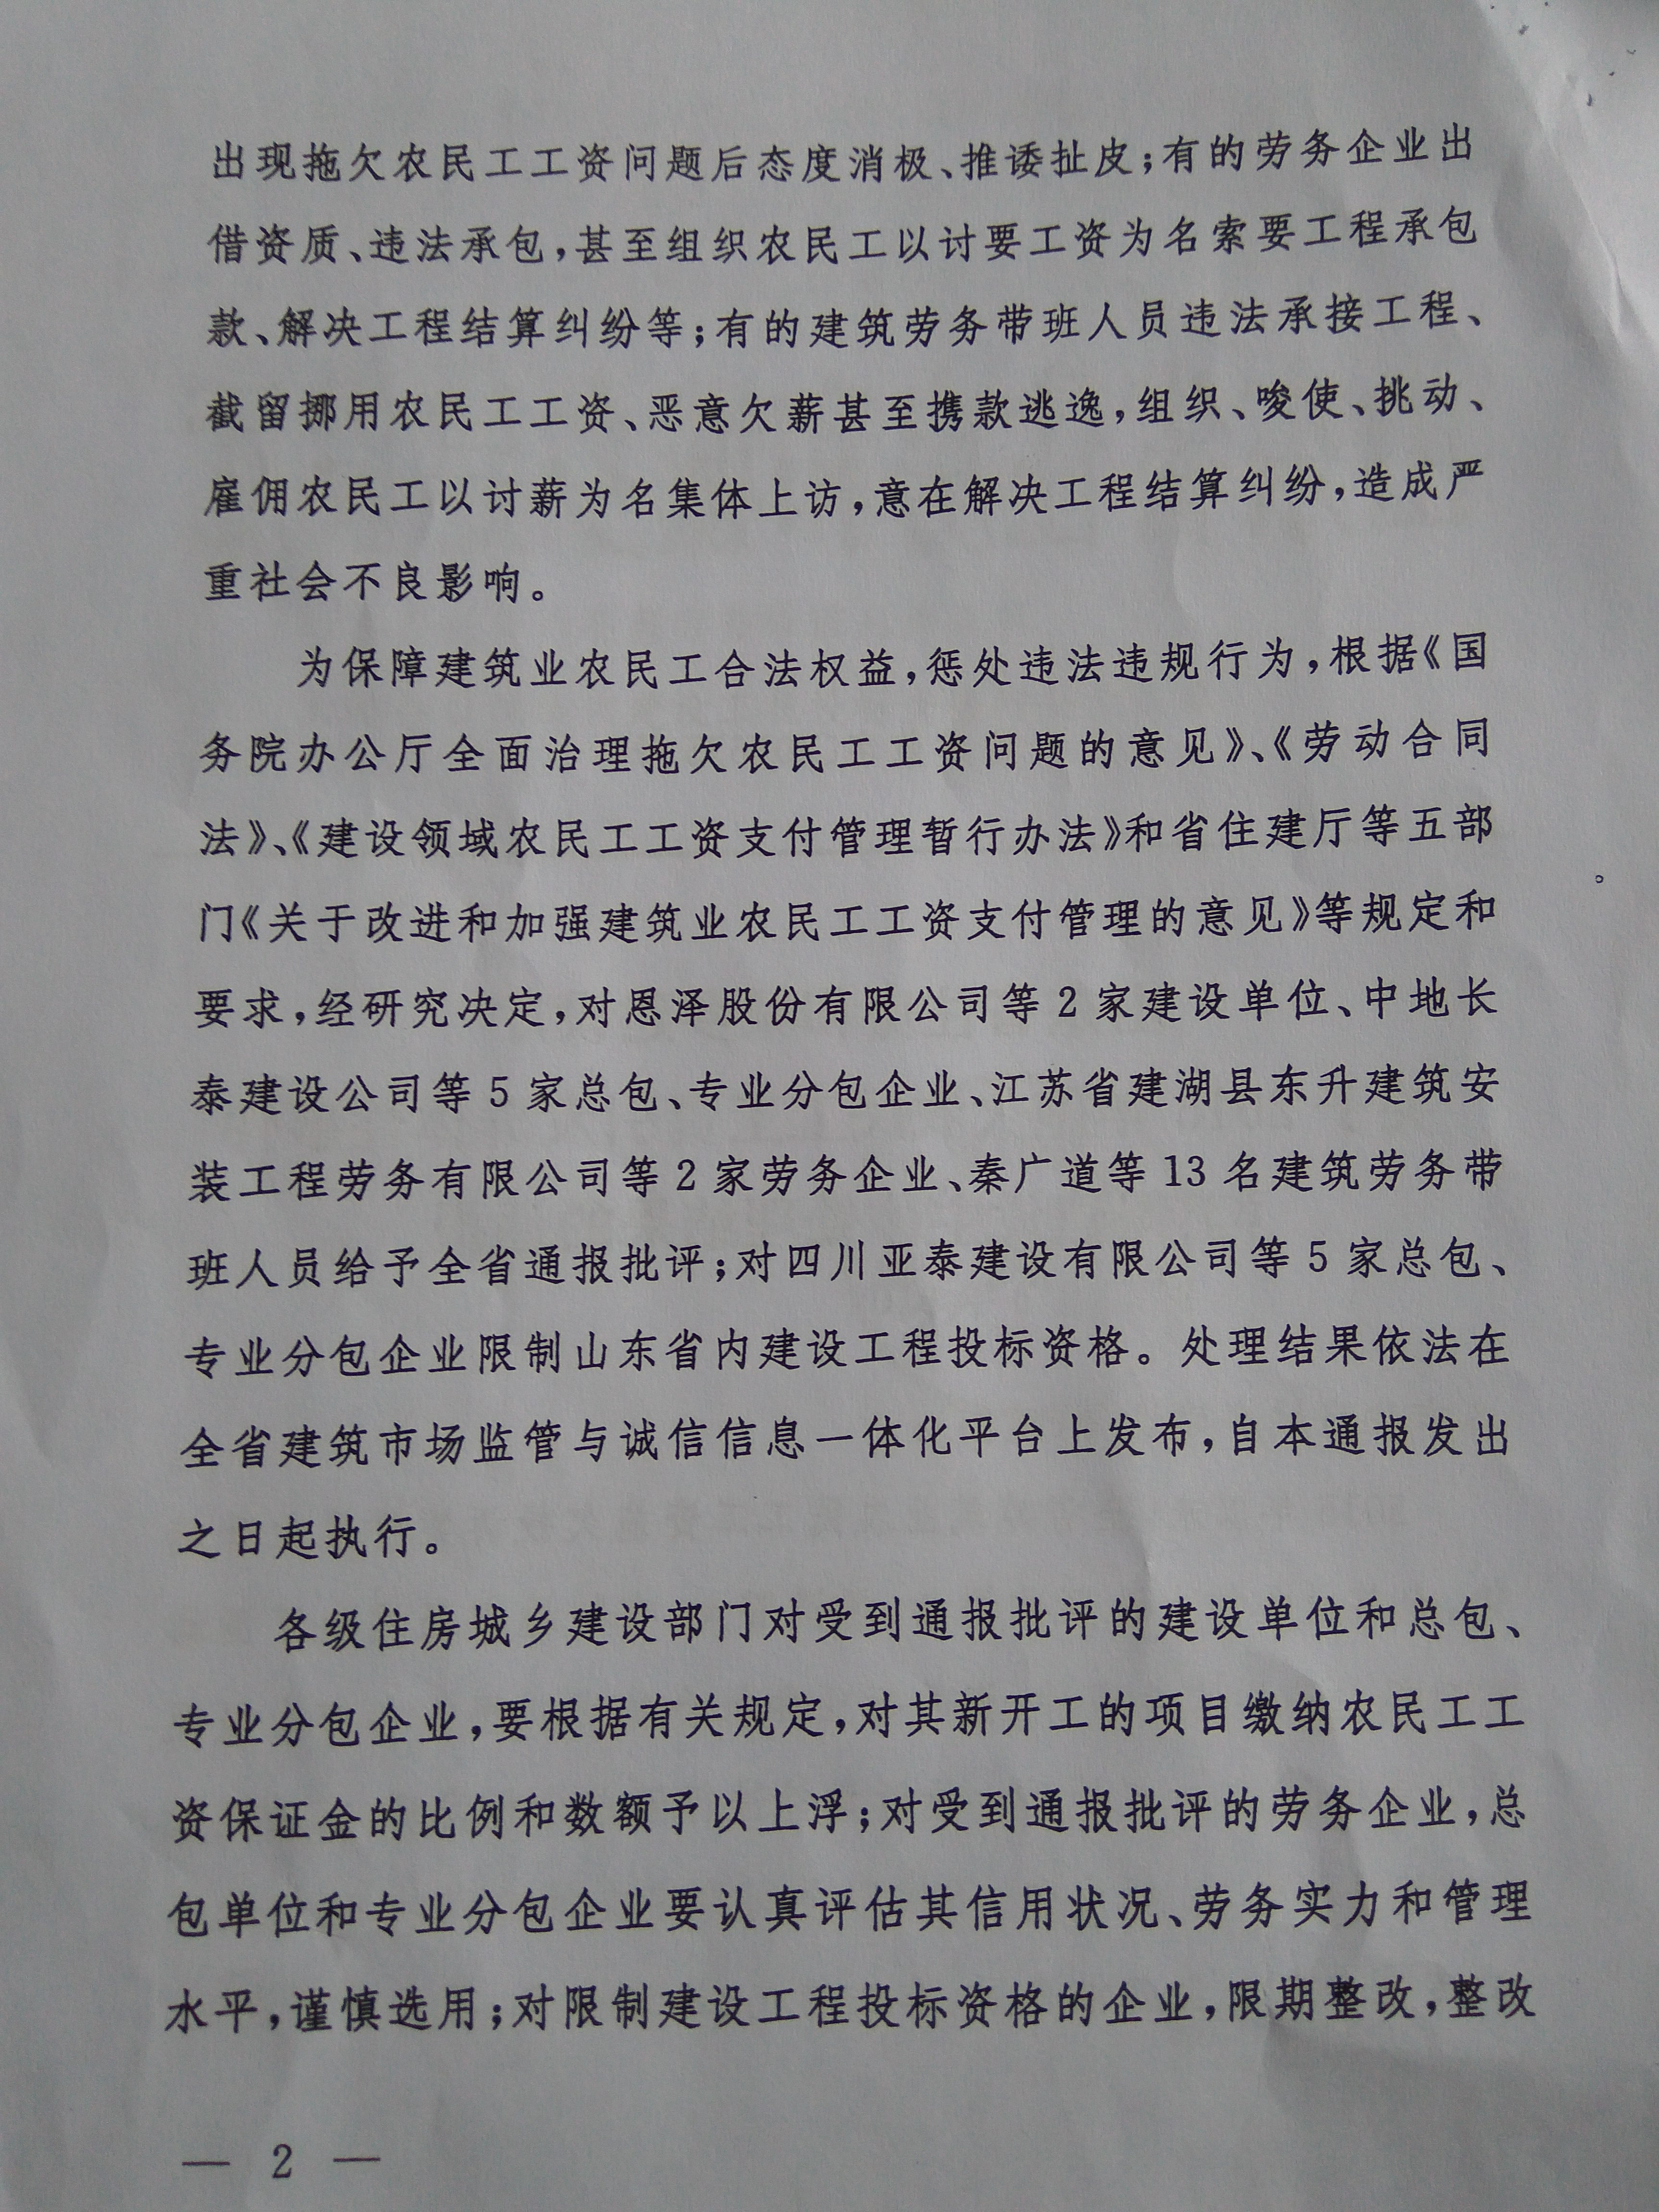 出现拖欠农民工工资问题后态度消极、推诿扯皮；有的劳务企业出
借资质、违法承包，甚至组织农民工以讨要工资为名索要工程承包
款、解决工程结算纠纷等；有的建筑劳务带班人员违法承接工程、
截留挪用农民工工资、恶意欠薪甚至携款逃逸，组织、唆使、挑动、
雇佣农民工以讨薪为名集体上访，意在解决工程结算纠纷，造成严
重社会不良影响。
为保障建筑业农民工合法权益，惩处违法违规行为，根据《国
务院办公厅全面治理拖欠农民工工资问题的意见》、《劳动合同
法》、《建设领域农民工工资支付管理暂行办法》和省住建厅等五部
门《关于改进和加强建筑业农民工工资支付管理的意见》等规定和
要求，经研究决定，对恩泽股份有限公司等2家建设单位、中地长
泰建设公司等5家总包、专业分包企业、江苏省建湖县东升建筑安
装工程劳务有限公司等2家劳务企业、秦广道等13名建筑劳务带
班人员给予全省通报批评；对四川亚泰建设有限公司等5家总包、
专业分包企业限制山东省内建设工程投标资格。处理结果依法在
全省建筑市场监管与诚信信息一体化平台上发布，自本通报发出
之日起执行。
各级住房城乡建设部门对受到通报批评的建设单位和总包、
专业分包企业，要根据有关规定，对其新开工的项目缴纳农民工工
资保证金的比例和数额予以上浮；对受到通报批评的劳务企业，总
包单位和专业分包企业要认真评估其信用状况、劳务实力和管理
水平，谨慎选用；对限制建设工程投标资格的企业，限期整改，整改
— 2 —